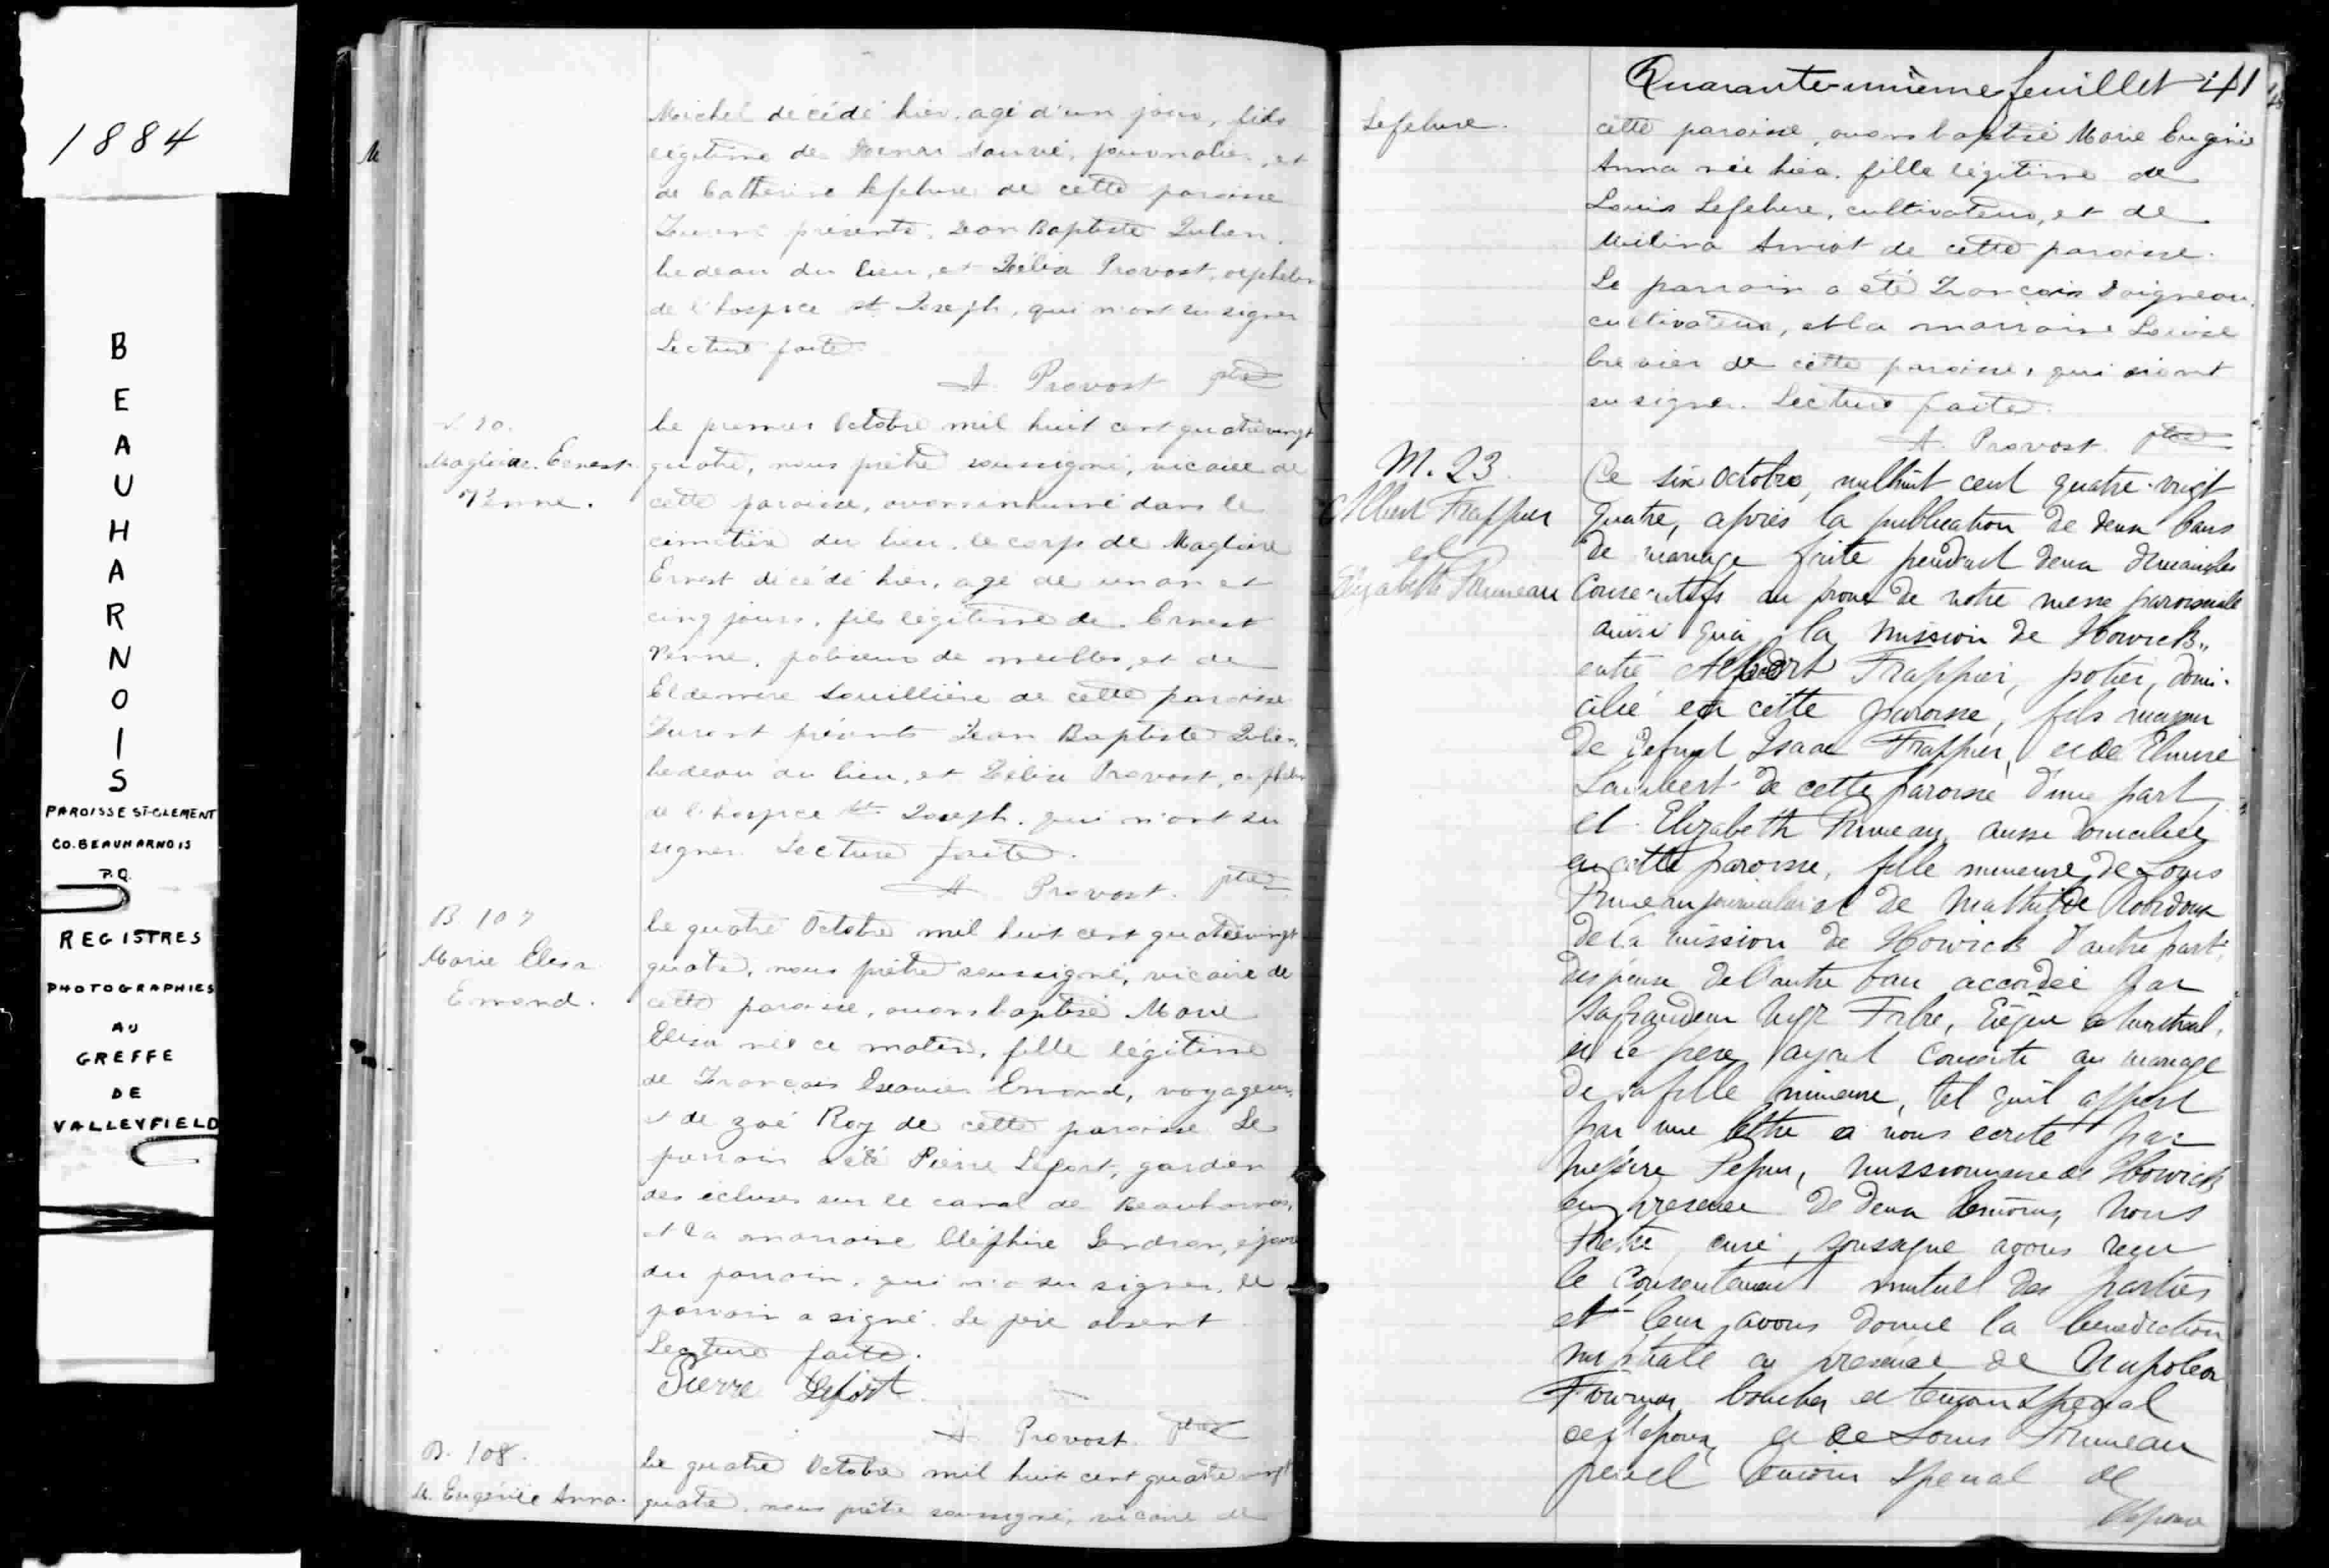 1884
BEAUHARNOIS
PAROISSE ST-CLEMENT
CO. BEAUHARNOIS
P.Q.
REGISTRES
PHOTOGRAPHIES
AU
GREFFE
DE
VALLEYFIELD
Michel décédé hier, agé d'un jour, fils
légitime de Sauvé, journalier, et
de Catherine Lefebvre de cette paroisse
Furent présents Jean Baptiste Julien
bedeau du lieu, et Zélia Provost, orpheline
de l'hospice St Joseph, qui n'ont su signer
Lecture faite.
A. Provost ptre
Magloire Ernest
Venne.
Le premier Octobre mil huit cent quatrevingt
quatre, nous prêtre soussigné, vicaire de
cette paroisse, avons inhumé dans le
cimetière du lieu, le corps de Magloire
Ernest décédé hier, agé de un an et
cinq jours, fils légitime de Ernest
Venne, polisseur de meubles, et de
de cette paroisse
Furent présents Jean Baptiste Julien,
bedeau du lieu, et Zélia Provost, orpheline
de l'hospice St Joseph, qui n'ont su
signer. Lecture faite.
A. Provost. ptre
B. 107
Marie Elisa
Emond.
Le quatre Octobre mil huit cent quatrevingt
quatre, nous prêtre soussigné, vicaire de
cette paroisse, avons baptisé Marie
Elisa née ce matin, fille légitime
de François Emond, voyageur,
et de Zoé Roy de cette paroisse Le
parrain a été Pierre Lefort, gardien
des écluses sur le canal de Beauharnois,
et la marraine Gendron, épouse
du parrain, qui n'a su signer, le
parrain a signé. Le père absent
Lecture faite.
Pierre Lefort
A. Provost. ptre
B. 108.
M. Eugénie Anna.
Le quatre Octobre mil huit cent quatrevingt
quatre, nous prêtre soussigné, vicaire de
Quarante-unième feuillet 41
Lefebvre.
cette paroisse, avons baptisé Marie Eugénie
Anna née hier, fille légitime de
Louis Lefebvre, cultivateur, et de
Amiot de cette paroisse.
Le parrain a été François Daigneau,
cultivateur, et la marraine Louise
de cette paroisse, qui n'ont
su signer. Lecture faite.
A. Provost. ptre
M. 23.
Albert Frappier
et
Elizabeth Primeau
Ce six octobre, mil huit cent quatre-vingt
quatre, après la publication de deux bans
de mariage faite pendant deux dimanches
consecutifs au prone de notre messe paroissiale
ainsi qu'à la mission de Howick,
entre Albert Frappier, potier, domi-
cilié en cette paroisse, fils majeur
de defunt Isaac Frappier, et de
Lambert de cette paroisse d'une part,
et Elizabeth Primeau aussi domiciliée
en cette paroisse, fille mineure de Louis
Primeau journalier et de Mathilde Robidoux
de la mission de Howick d'autre part;
dispense de l'autre ban accordée par
sa grandeur Mgr Fabre, Evêque de Montréal,
et le pere ayant consenti au mariage
de sa fille mineure, tel qu'il appert
par une lettre à nous ecrite par
Messire Pepin, missionnaire de Howick
en presence de deux temoins, Nous
Pretre, curé, soussigné avons reçu
le consentement mutuel des parties
et leur avons donné la benediction
nuptiale en presence de Napoleon
Fournier, boucher et temoin special
de l'epoux, et de Louis Primeau
temoin special de
l'épouse